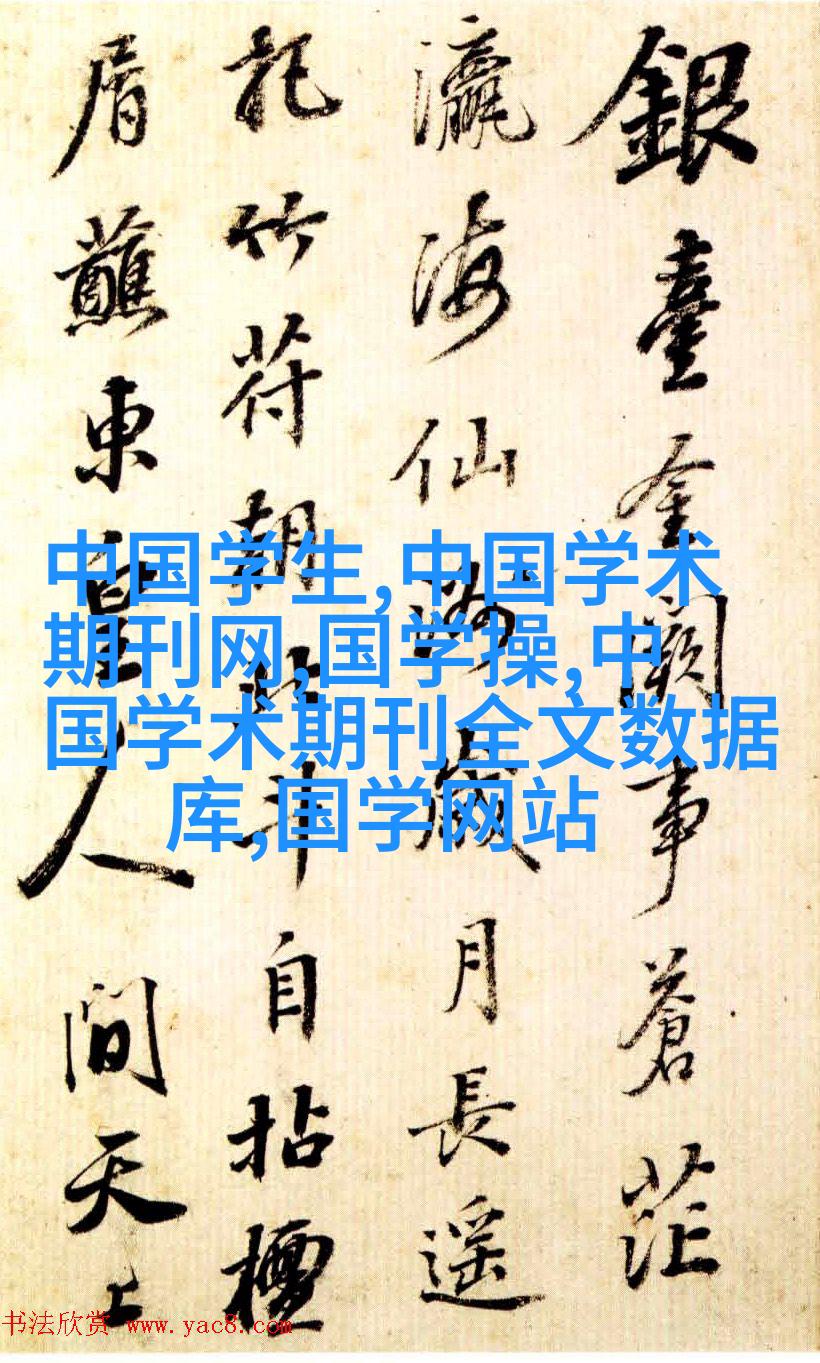 銀臺金闕事蒼茫
瀛海仙洲歲月長遥
竹符朝北斗自拈檀
屑蘸東皇人間天上
中国学生,中国学术
期刊网,国学操,中
国学术期刊全文数据
库,国学网站
书法欣赏 www.yac8.com